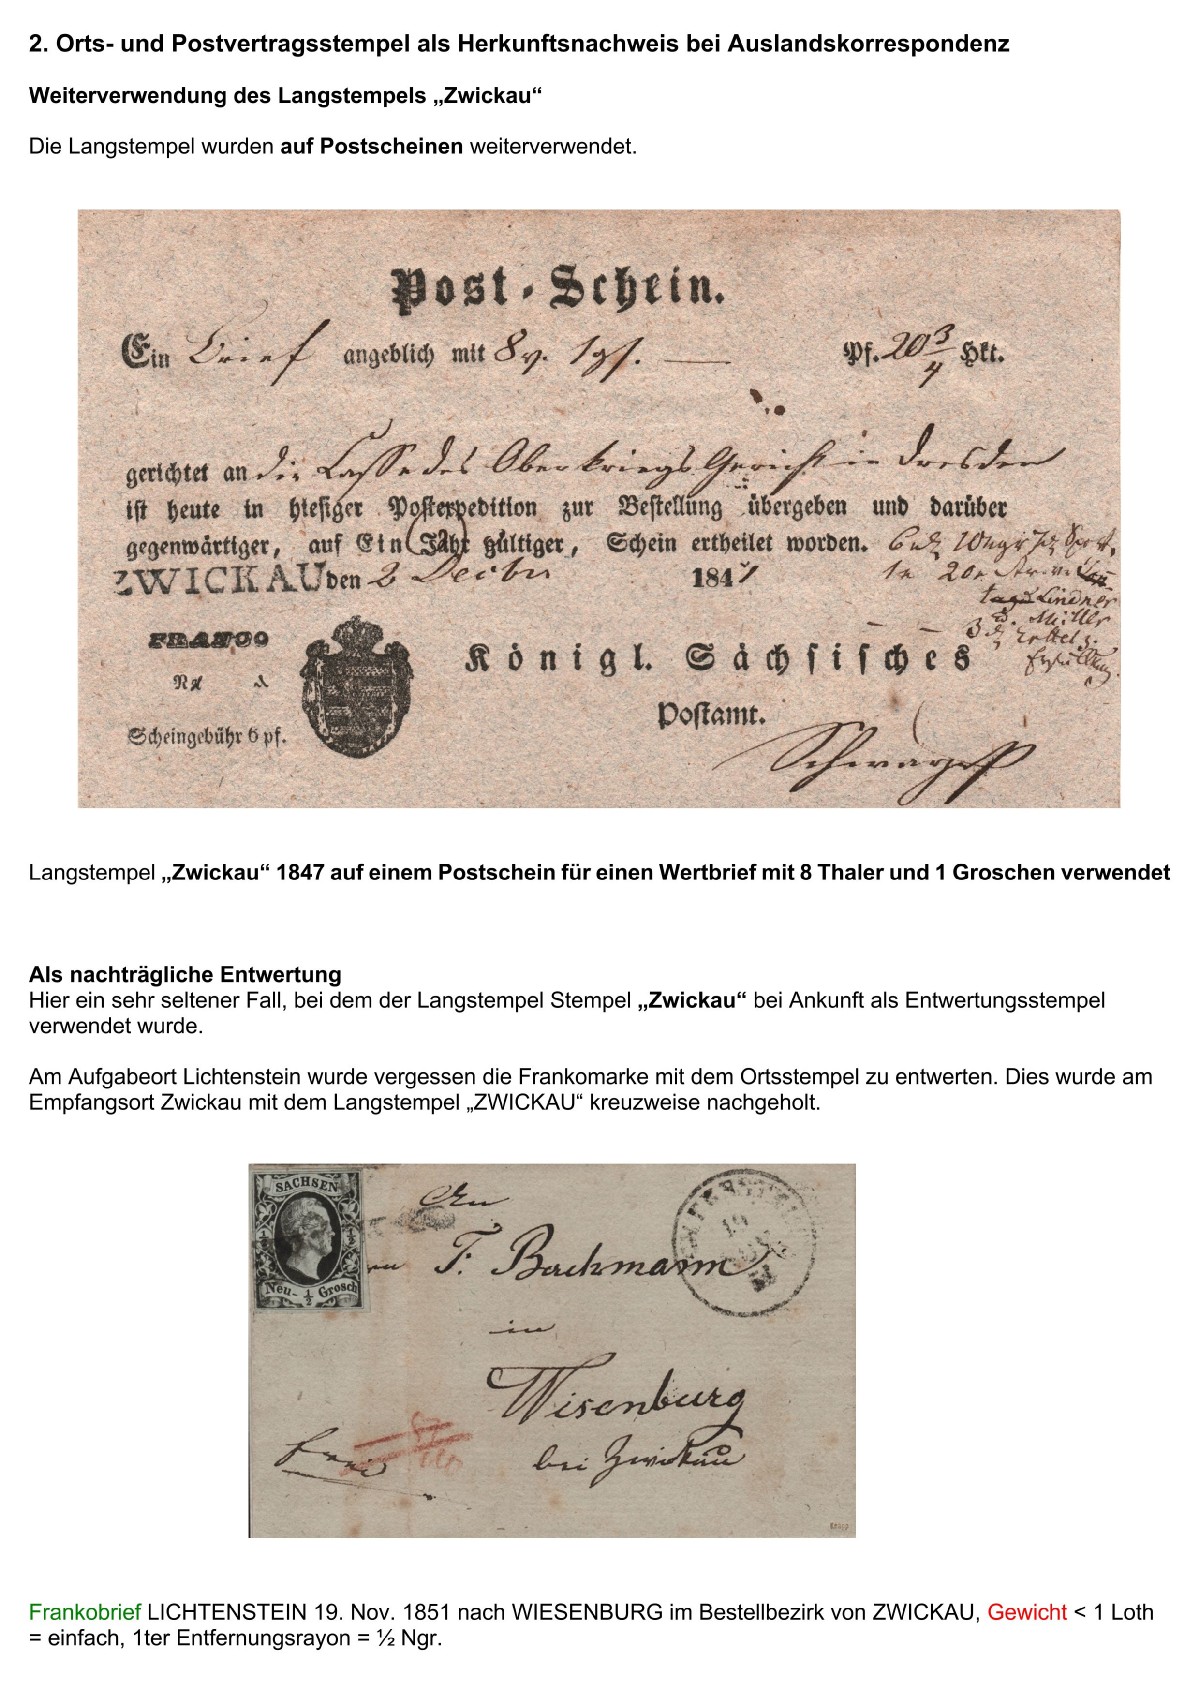 2. Orts- und Postvertragsstempel als Herkunftsnachweis bei Auslandskorrespondenz
Weiterverwendung des Langstempels „Zwickau“
Die Langstempel wurden auf Postscheinen weiterverwendet.
Post-Schein.
Ein Brief angeblich mit 8 Pf. 20 3/4 Hkt.
gerichtet an die Casse des Ober Kriegs Gericht in Dresden
ist heute in hiesiger Postexpedition zur Bestellung übergeben und darüber
gegenwärtiger, auf Ein Jahr gültiger, Schein ertheilet worden.
ZWICKAU den 2 Decbr 1847
Lindner
Müller
FRANCO
Königl. Sächsisches
Scheingebühr 6 pf.
Postamt.
Langstempel „Zwickau“ 1847 auf einem Postschein für einen Wertbrief mit 8 Thaler und 1 Groschen verwendet
Als nachträgliche Entwertung
Hier ein sehr seltener Fall, bei dem der Langstempel Stempel „Zwickau“ bei Ankunft als Entwertungsstempel
verwendet wurde.
Am Aufgabeort Lichtenstein wurde vergessen die Frankomarke mit dem Ortsstempel zu entwerten. Dies wurde am
Empfangsort Zwickau mit dem Langstempel „ZWICKAU“ kreuzweise nachgeholt.
SACHSEN
½ ½
Neu- ½ Grosch
An
F. Bachmann
19
51
in
Wisenburg
bei Zwickau
frei
Frankobrief LICHTENSTEIN 19. Nov. 1851 nach WIESENBURG im Bestellbezirk von ZWICKAU, Gewicht < 1 Loth
= einfach, 1ter Entfernungsrayon = ½ Ngr.